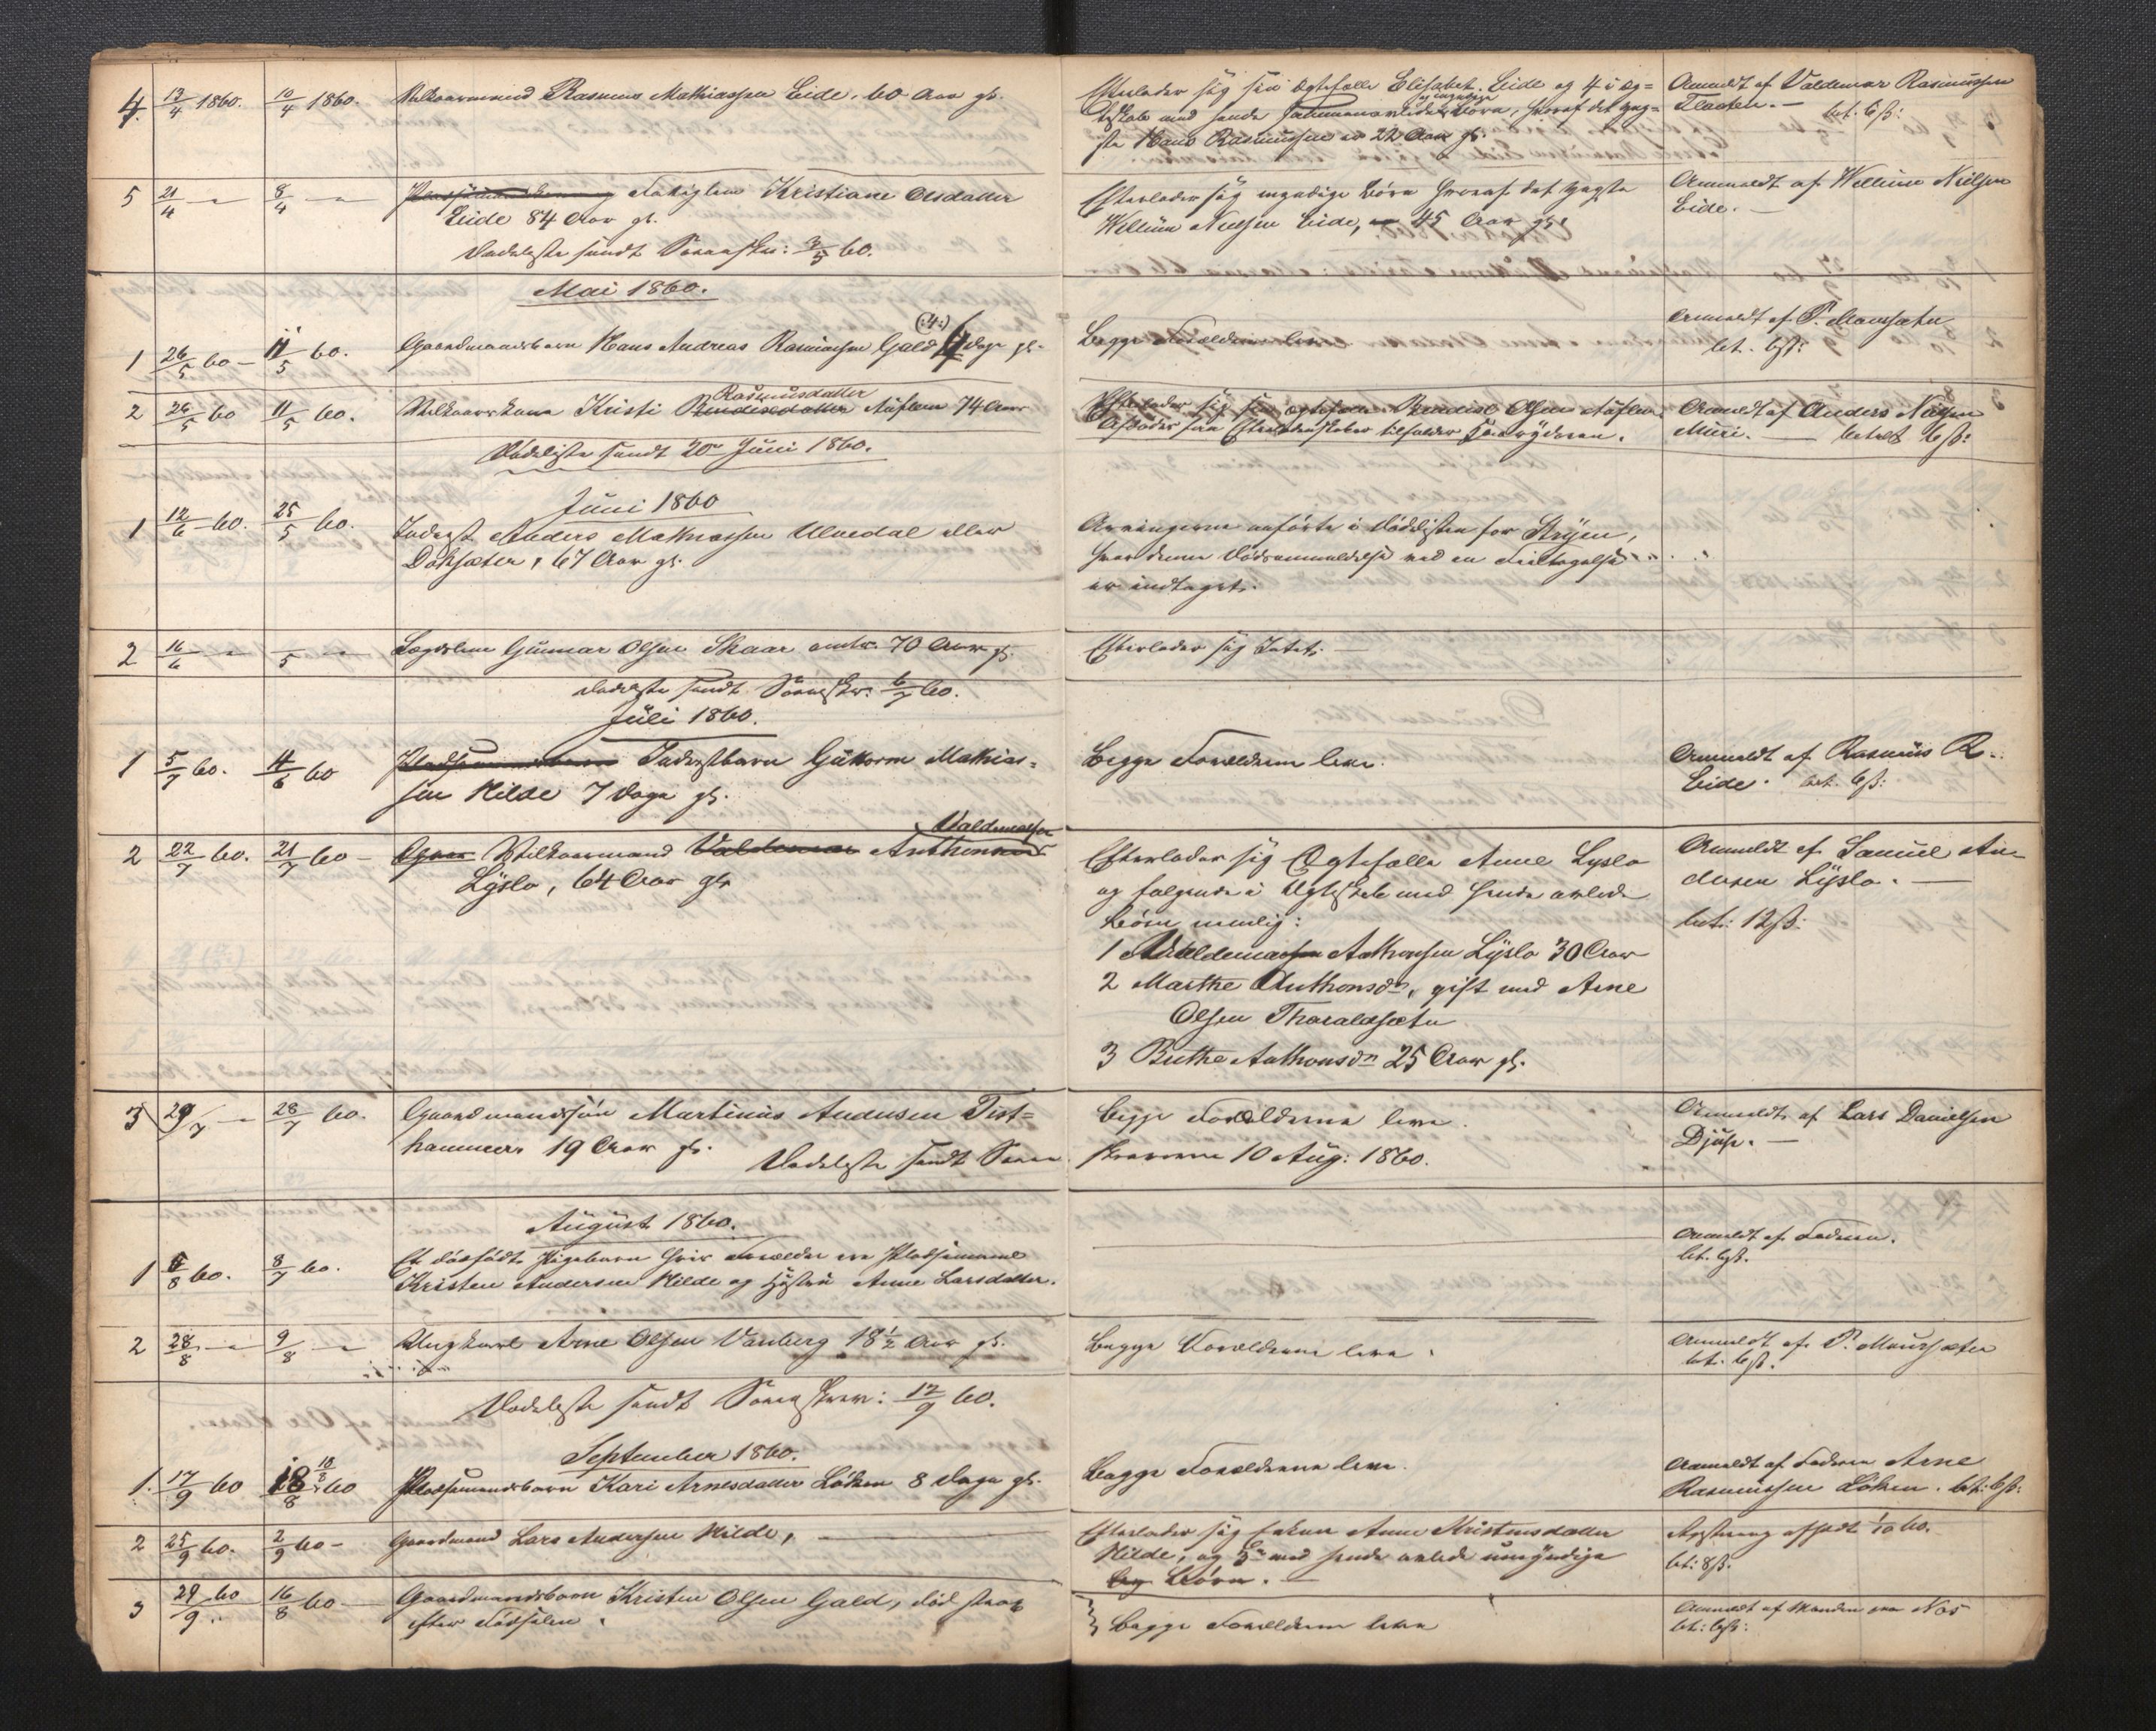 4 13/4 1860. 10/4 1860. Vilkaarmand Rasmus Mathiassen Eide. 60 Aar gl.
Efterlader sig sin Ægtefælle Elisabet Eide og 4 i Æg=
teskab med hende sammenavlede myndige Børn, hvoraf det yng=
ste Hans Rasmussen er 22 Aar gl.
Anmeldt af Valdemar Rasmussen
Flaaten. — bet. 6 ß:
5 21/4 — 8/4 — Fattiglem Kristiane Olsdatter
Eide 84 Aar gl.
Dødsliste sendt Sorensk: 3/5 60.
Efterlader sig myndige Børn hvoraf det yngste
Wellum Nielsen Eide, 45 Aar gl.
Anmeldt af Wellum Nielsen
Eide. —
Mai 1860.
1 26/5 60 — 11/5 60. Gaardmandsbarn Hans Andreas Rasmussen Gald (:4:) Dage gl.
Begge Forældrene leve
Anmeldt af P. Maurseter
bet. 6 ß:
2 26/5 60 11/5 60. Vilkaarskone Kristi Rasmusdatter 74 Aar
Efterlader sig sin Ægtefælle Bendix Olsen
Anmeldt af Anders Nielsen
Muri. — betalt 6 ß:
Dødsliste sendt 20de Juni 1860.
Juni 1860
1 12/6 60. 25/5 60. Inderst Anders Mathiassen Ulvedal eller
Dokseter, 67 Aar gl.
Arvingerne anførte i Dødslisten for Stryen,
hvor denne Dødsanmeldelse ved en Feiltagelse
er indtaget.
2 16/6 — /5 — Lægdslem Gunnar Olsen Skaar omtr. 70 Aar gl.
Efterlader sig Intet. —
Dødsliste sendt Sorenskr. 6/7 60.
Juli 1860.
1 5/7 60. 11/6 60 Inderstbarn Guttorm Mathias=
sen Hilde 7 Dage gl.
Begge Forældrene leve.
Anmeldt af Rasmus R.
Eide. bet. 6 ß:
2 22/7 60. 21/7 60 — Vilkaarmand Valdemar Anthon Valdemarsen
Lyslo, 64 Aar gl.
Efterlader sig Ægtefælle Anne Lyslo
og følgende i Ægteskab med hende avlede
Børn nemlig:
1 Valdemar Anthonsen Lyslo 30 Aar
2 Marthe Anthonsdr. gift med Arne
Olsen Tharaldseter
3 Birthe Anthonsdr 25 Aar gl.
Anmeldt af Samuel An-
dersen Lyslo. —
bet. 12 ß.
3 29/7 — 28/7 60. Gaardmandssøn Martinus Andersen Tist=
hammer. 19 Aar gl.
Begge Forældrene leve.
Dødsliste sendt Soren
skriveren 10 Aug: 1860.
Anmeldt af Lars Danielsen
Djupe. —
August 1860.
1 6/8 60. 8/7 60. Et dødfødt Pigebarn hvis Forældre ere Pladsmand
Kristen Andersen Hilde og Hustru Anne Larsdatter.
Anmeldt af Faderen.
bet. 6 ß.
2 28/8 — 9/8 — Ungkarl Arne Olsen Vanberg 18 1/2 Aar gl.
Begge Forældrene leve.
Anmeldt af P. Maurseter
bet. 6 ß.
Dødsliste sendt Sorenskriv: 12/9 60.
September 1860.
1. 17/9 60 18/8 60 Pladsmandsbarn Kari Arnesdatter Løken 8 Dage gl.
Begge Forældrene leve.
Anmeldt af Faderen Arne
Rasmussen Løken. bet: 6 ß:
2 25/9 60. 2/9 60 — Gaardmand Lars Andersen Hilde, —
Efterlader sig Enken Anne Kristensdatter
Hilde, og 5 med hende avlede umyndige
Børn. —
afsendt 1/10 60.
bet: 8 ß.
3 29/9 60 16/8 60 — Gaardmandsbarn Kristen Olsen Gald, død strax
efter Fødselen.
Begge Forældrene leve
Anmeldt af Manden
bet: 6 ß: